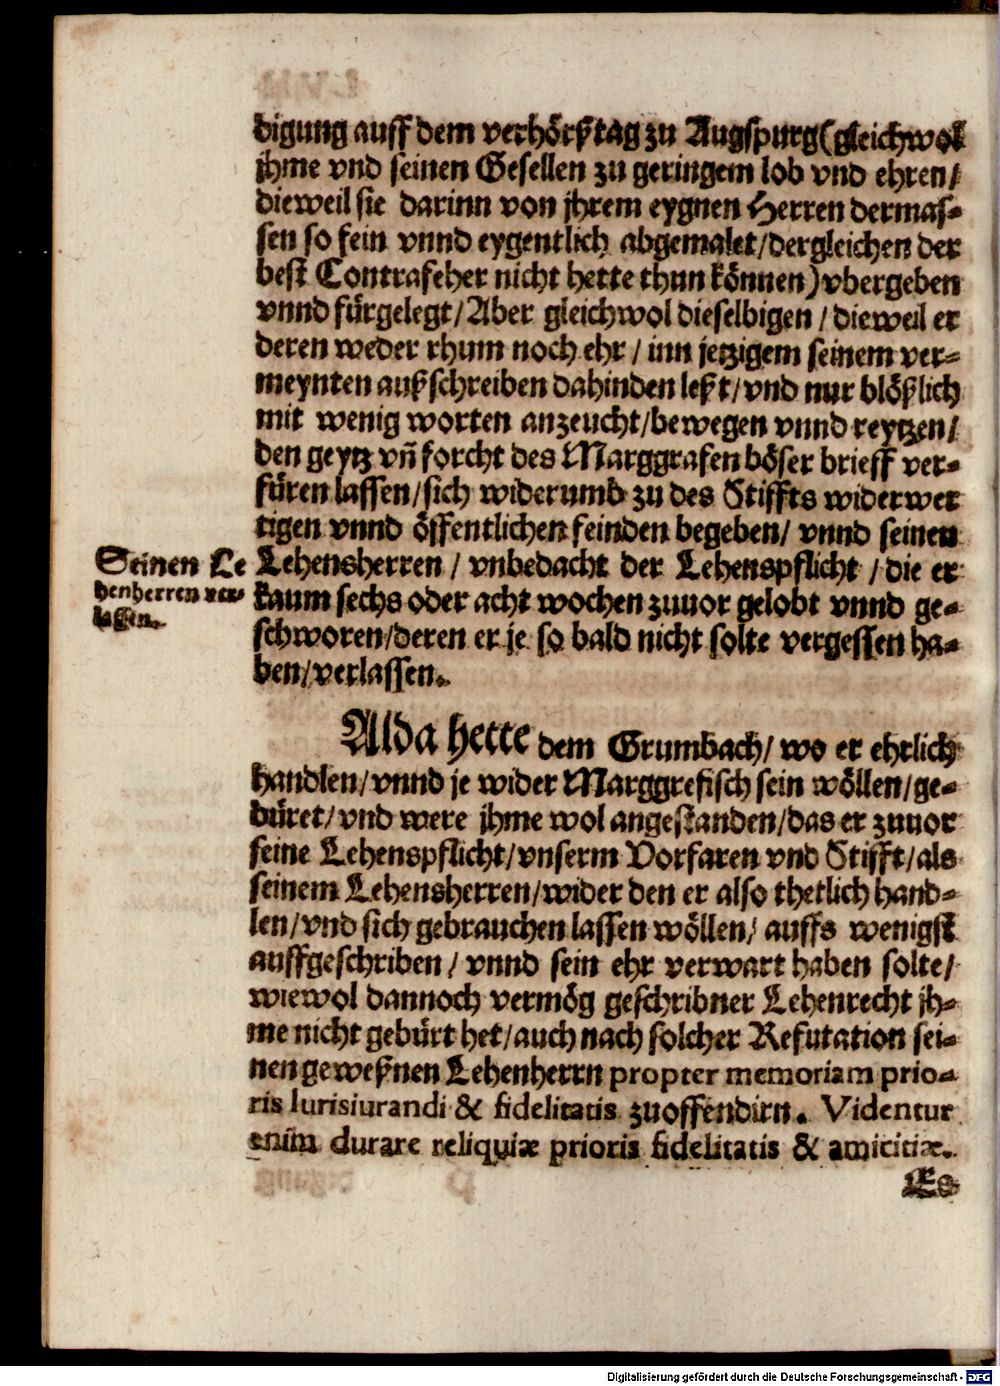 digung auff dem verhörßtag zu Augspurg (gleichwol
jhme vnd seinen Gesellen zu geringem lob vnd ehren/
dieweil sie darinn von jhrem eygnen Herren dermas-
sen so fein vnnd eygentlich abgemalet/dergleichen der
best Contrafeher nicht hette thun können) vbergeben
vnnd fürgelegt/Aber gleichwol dieselbigen/dieweil er
deren weder rhum noch ehr/inn jetzigem seinem ver-
meynten außschreiben dahinden leßt/vnd nur blößlich
mit wenig worten anzeucht/bewegen vnnd reytzen/
den geytz vñ forcht des Marggrafen böser brieff ver-
füren lassen/sich widerumb zu des Stiffts widerwer
tigen vnnd öffentlichen feinden begeben/vnnd seinen
Lehensherren/vnbedacht der Lehenspflicht/die er
kaum sechs oder acht wochen zuuor gelobt vnnd ge-
schworen/deren er je so bald nicht solte vergessen ha-
ben/verlassen.
Seinen Le
henherren ver-
lassen.
Alda hette dem Grumbach/wo er ehrlich
handlen/vnnd je wider Marggrefisch sein wöllen/ge-
büret/vnd were jhme wol angestanden/das er zuuor
seine Lehenspflicht/vnserm Vorfaren vnd Stifft/als
seinem Lehensherren/wider den er also thetlich hand-
len/vnd sich gebrauchen lassen wöllen/auffs wenigst
auffgeschriben/vnnd sein ehr verwart haben solte/
wiewol dannoch vermög geschribner Lehenrecht jh-
me nicht gebürt het/auch nach solcher Refutation sei-
nen geweßnen Lehenherrn propter memoriam prio-
ris Iurisiurandi & fidelitatis zuoffendirn. Videntur
enim durare reliquiæ prioris fidelitatis & amicitiæ.
Es
Digitalisierung gefördert durch die Deutsche Forschungsgemeinschaft - DFG